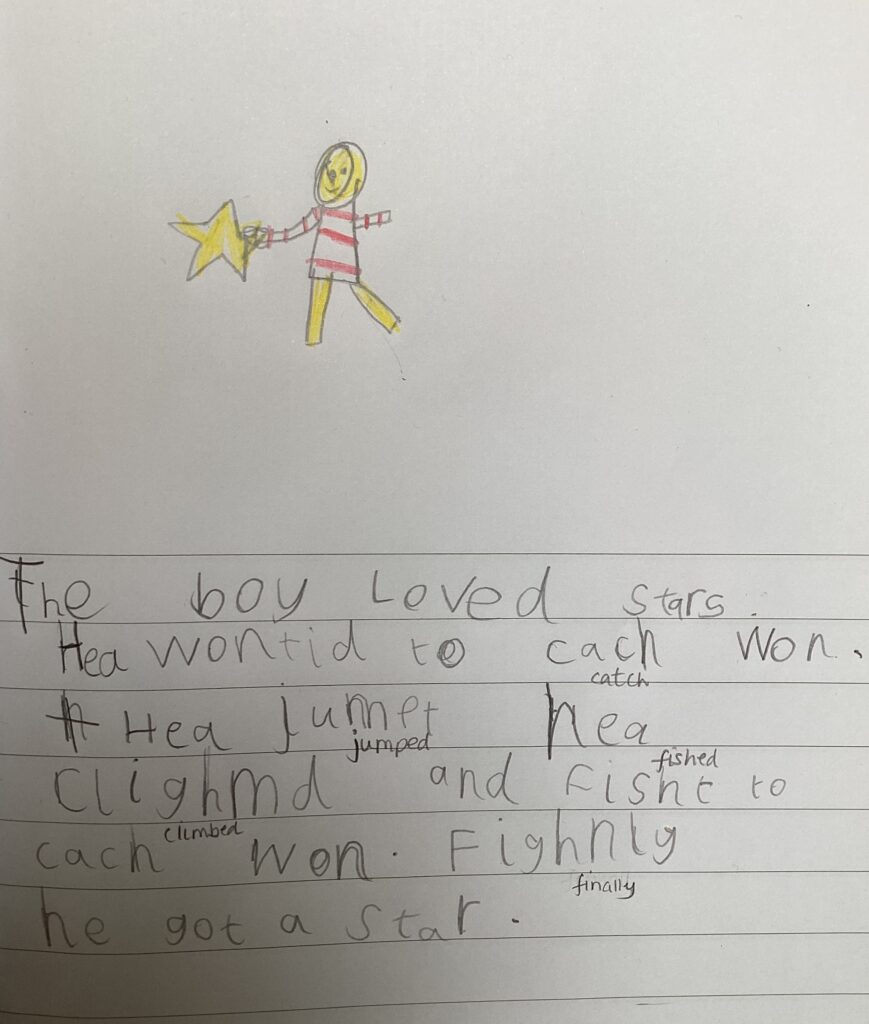 The boy Loved stars.
Hea wontid to cach won.
catch
Hea jumpt hea
jumped
fished
Clighmd and fisht to
climbed
cach won. Fighnly
finally
he got a star.